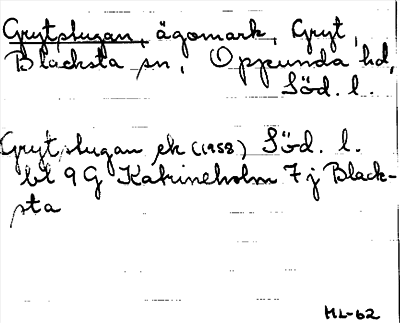 Grytstugan, ägomark, Gryt,
Blacksta sn, Oppunda hd,
Söd. l.
Grytstugan ek (1958) Söd. l.
bl 9 G Katrineholm 7 j Black-
sta
HL-62